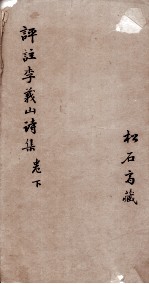 松石斋藏
評註李義山诗集 卷下